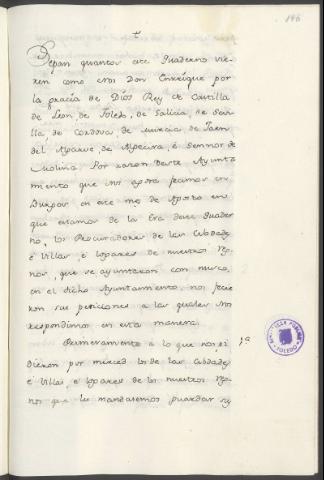 146
Sepan quantos este Quaderno vie-
ren como Nos Don Enrrique por
la gracia de Dios Rey de Castilla
de Leon, de Toledo, de Galicia, de Sevi-
lla, de Cordova, de Murcia, de Jaen
del Algarve, de Algecira, é Sennor de
Molina. Por razon deste Ayunta
miento que Nos agora fecimos en
Burgos en este mes de Agosto en
que estamos de la Era deste Quader
no, los Procuradores de las Cibdades
é Villas, é logares de nuestros reg-
nos, que se ayuntaron con nusco,
en el dicho Ayuntamiento, nos ficie
ron sus peticiones a las quales Nos
respondimos en esta manera.
Primeramente a lo que nos pi
dieron por merced los de las Cibdades
é Villas, é logares de los nuestros reg-
nos que les mandasemos guardar sus
1ª
TOLEDO